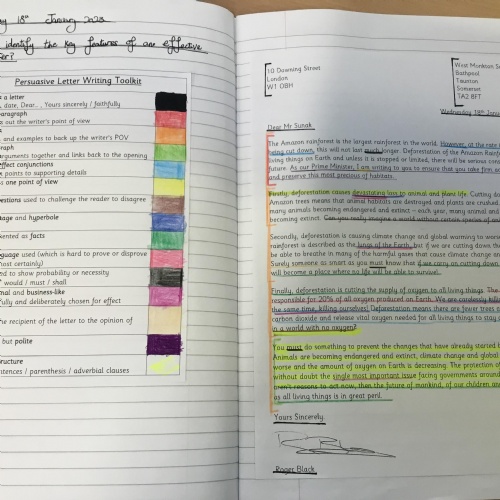 y 18th January 2023
identify the key features of an effective
Persuasive Letter Writing Toolkit
a letter
, date, Dear... , Yours sincerely / faithfully
paragraph
out the writer's point of view
and examples to back up the writer's POV
arguments together and links back to the opening
effect conjunctions
points to supporting details
one point of view
used to challenge the reader to disagree
and hyperbole
as facts
used (which is hard to prove or disprove
most certainly)
to show probability or necessity
would / must / shall
and business-like
fully and deliberately chosen for effect
the recipient of the letter to the opinion of
but polite
structure
/ parenthesis / adverbial clauses
10 Downing Street
London
W1 0BH
West Monkton
Bathpool
Taunton
Somerset
TA2 8FT
Wednesday 18th
Dear Mr Sunak,
The Amazon rainforest is the largest rainforest in the world. However, at the rate
being cut down, this will not last much longer. Deforestation of the Amazon
living things on Earth and unless it is stopped or limited, there will be serious
future. As our Prime Minister, I am writing to you to ensure that you take firm
and preserve this most precious of habitats.
Firstly, deforestation causes devastating loss to animal and plant life. Cutting
Amazon trees means that animal habitats are destroyed and plants are crushed.
many animals becoming endangered and extinct – each year, many animal
becoming extinct. Can you really imagine a world without certain species of
Secondly, deforestation is causing climate change and global warming to
rainforest is described as the lungs of the Earth, but if we are cutting down
be able to breathe in many of the harmful gases that cause climate change and
Surely someone as smart as you must know that if we carry on cutting down
will become a place where no life will be able to survive!
Finally, deforestation is cutting the supply of oxygen to all living things. The
responsible for 20% of all oxygen produced on Earth. We are carelessly
the same time, killing ourselves! Deforestation means there are fewer trees
carbon dioxide and release vital oxygen needed for all living things to stay
in a world with no oxygen?
You must do something to prevent the changes that have already started
Animals are becoming endangered and extinct, climate change and global
worse and the amount of oxygen on Earth is decreasing. The protection of
without doubt the single most important issue facing governments around
reasons to act now, then the future of mankind, of our children and
as all living things is in great peril.
Yours Sincerely,
Roger Black